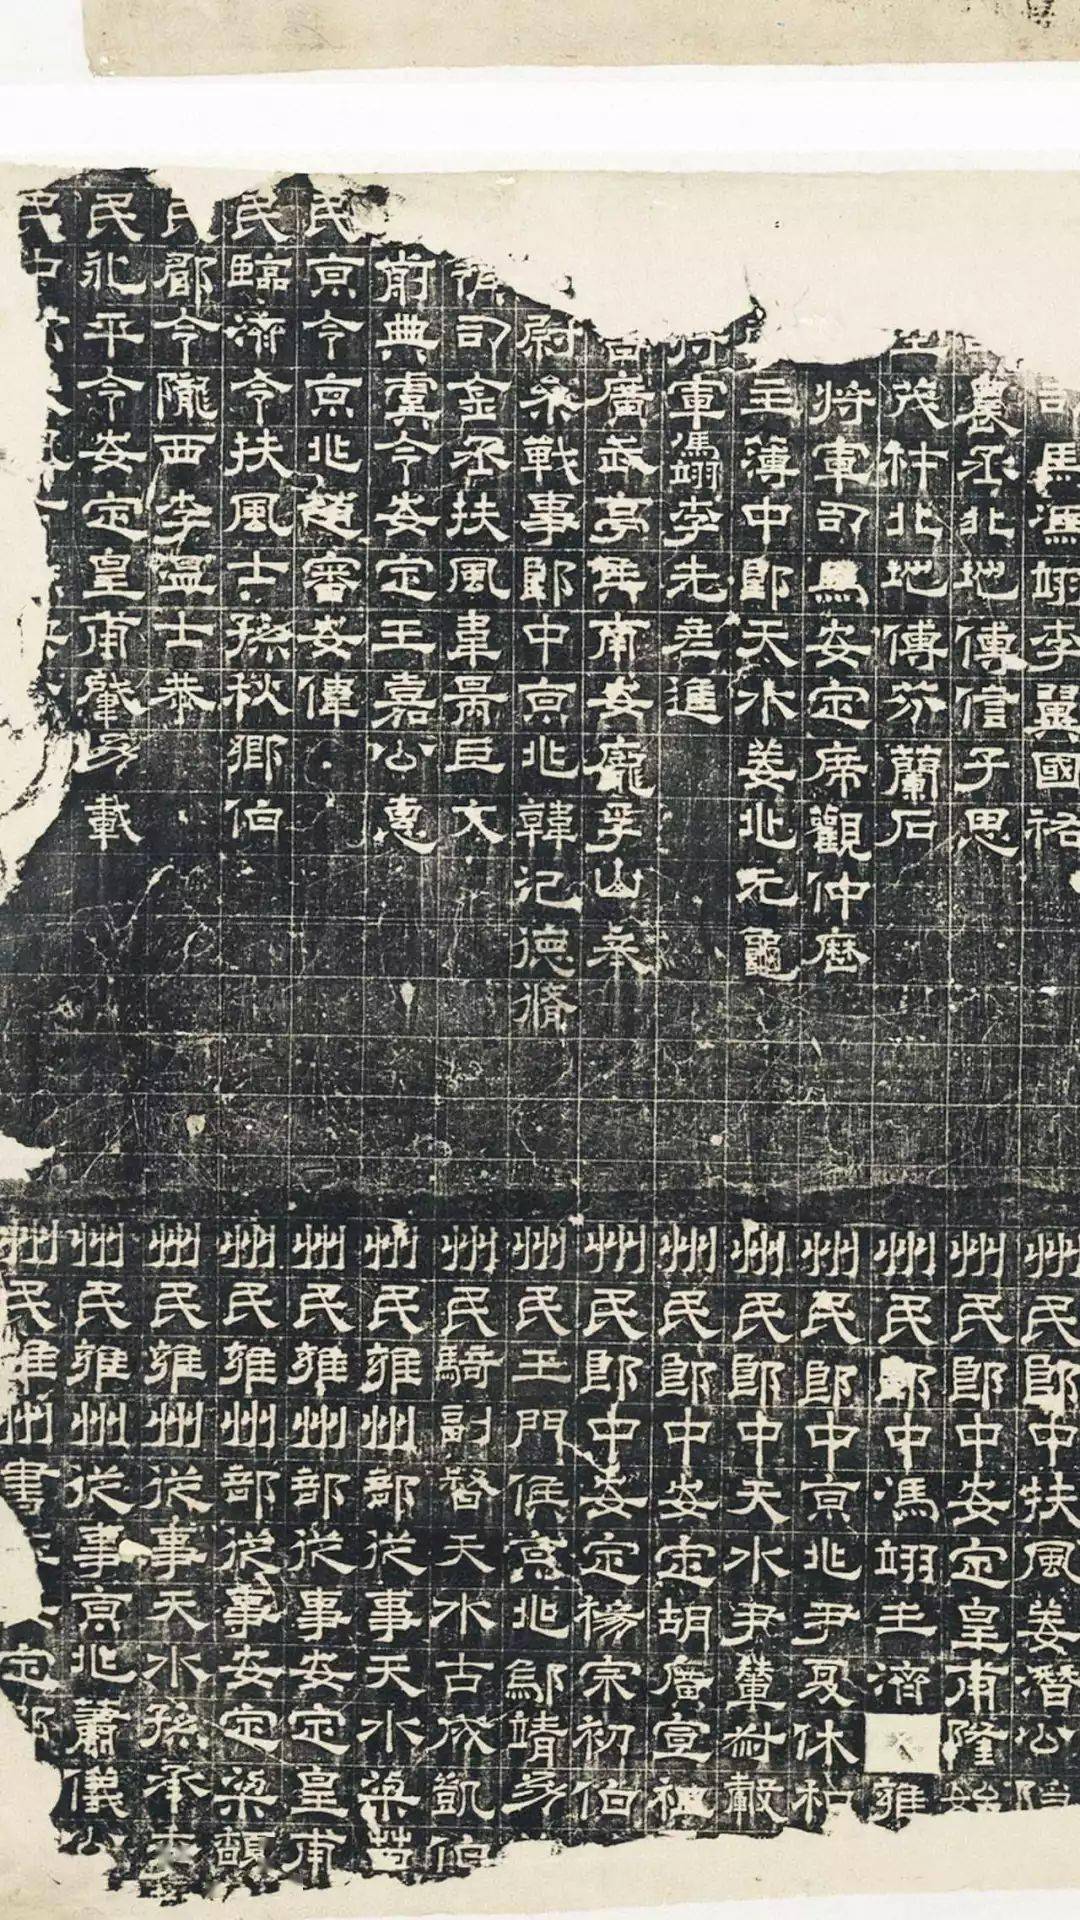 馬馮翊李翼國祐
農丞北地傅信子思
茂材北地傅芬蘭石
將軍司馬安定席觀仲歷
主簿中郎天水姜兆元龜
將軍馮翊李先彥進
廣武亭侯南安龐孚山奉
尉參戰事郎中京兆韓氾德脩
司金丞扶風韋昺巨文
前典虞令安定王嘉公惠
民京令京兆趙審安偉
民臨濟令扶風士孫秋鄉伯
民郿令隴西李溫士恭
民永平令安定皇甫肇幼載
民中郎
州民郎中扶風姜潛公
州民郎中安定皇甫隆始
州民郎中馮翊王濟雍
州民郎中京兆尹夏休和
州民郎中天水尹輦叔轂
州民郎中安定胡廣宣祖
州民郎中安定楊宗初伯
州民玉門候京兆鄔靖幼
州民騎副督天水古成凱伯
州民雍州部從事天水梁苕
州民雍州部從事安定皇甫
州民雍州部從事安定梁
州民雍州從事天水孫承
州民雍州從事京兆蕭儀公
州民雍州書定